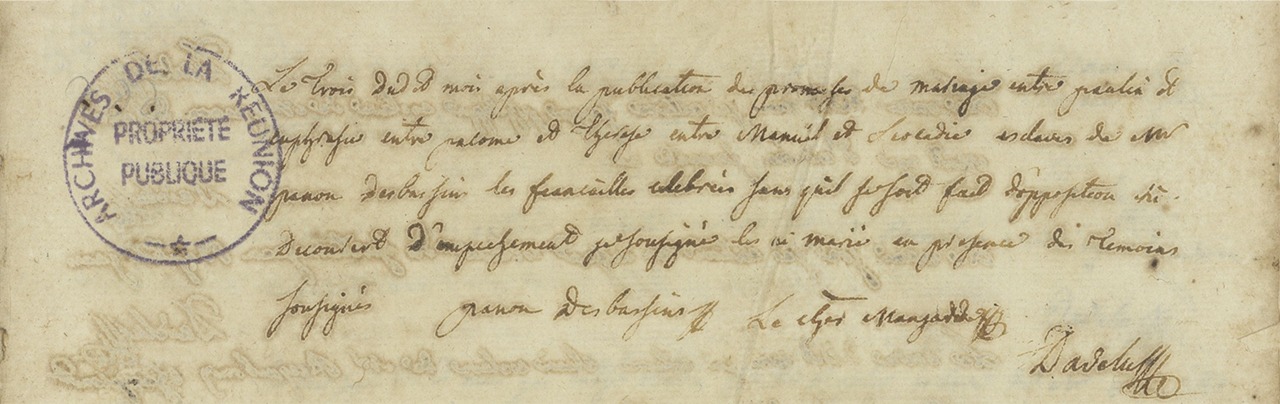 ARCHIVES DE LA REUNION
PROPRIÉTÉ
PUBLIQUE
Le trois dudt mois après la publication des promesses de mariage entre paulin et
euphrasie entre pacome et therese entre Manuel et Leocadie esclaves de Mr
panon desbassins les fiancailles celebrées sans quil se soit fait d'opposition ni
decouvert d'empechement je soussigné les ai marié en presence des temoins
soussignés panon desbassins Le cher
Davelu